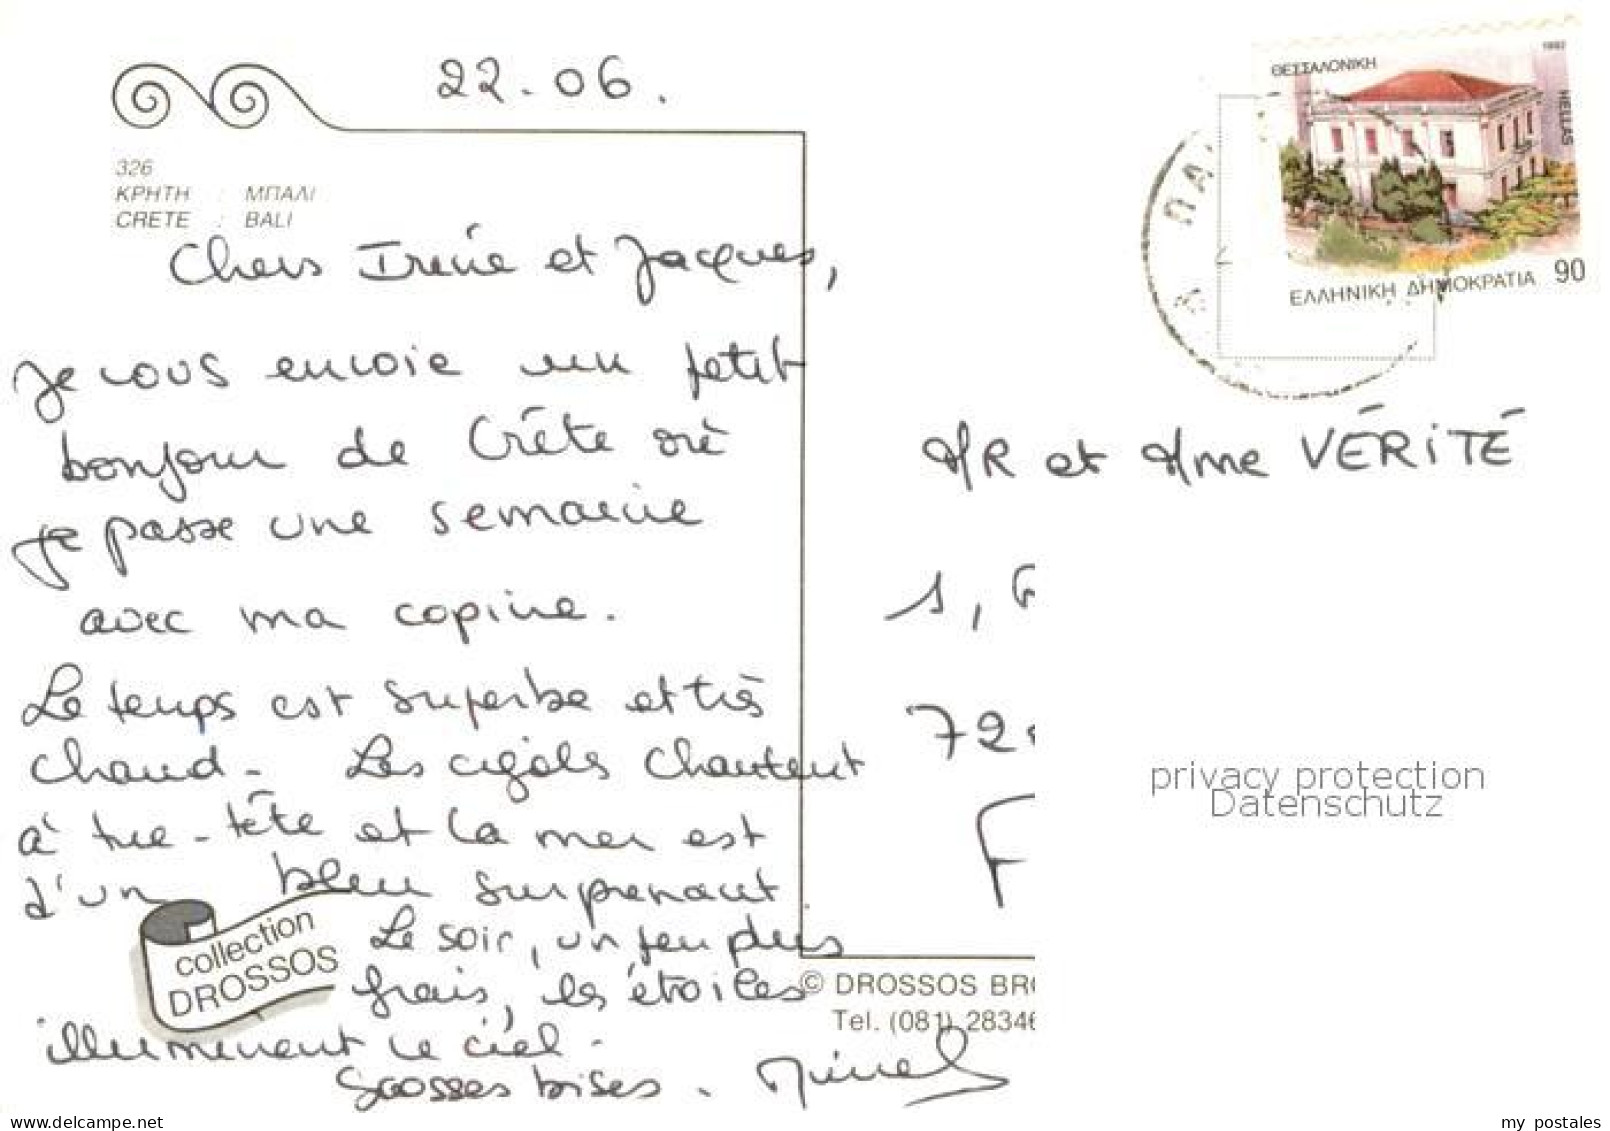 22.06.
326
ΚΡΗΤΗ : ΜΠΑΛΙ
CRETE : BALI
Chers Irène et Jacques,
Je vous envoie un petit
bonjour de Crête où
je passe une semaine
avec ma copine.
Le temps est superbe et très
chaud. Les cigales chantent
à tue-tête et la mer est
d'un bleu surprenant.
Le soir, un peu plus
frais, les étoiles
illuminent le ciel.
Grosses bises.
collection
DROSSOS
ΘΕΣΣΑΛΟΝΙΚΗ
1992
HELLAS
ΕΛΛΗΝΙΚΗ ΔΗΜΟΚΡΑΤΙΑ 90
MR et Mme VÉRITÉ
1,
72
F
privacy protection
Datenschutz
© DROSSOS BRO
Tel. (081) 28346
akpool.de
my postales